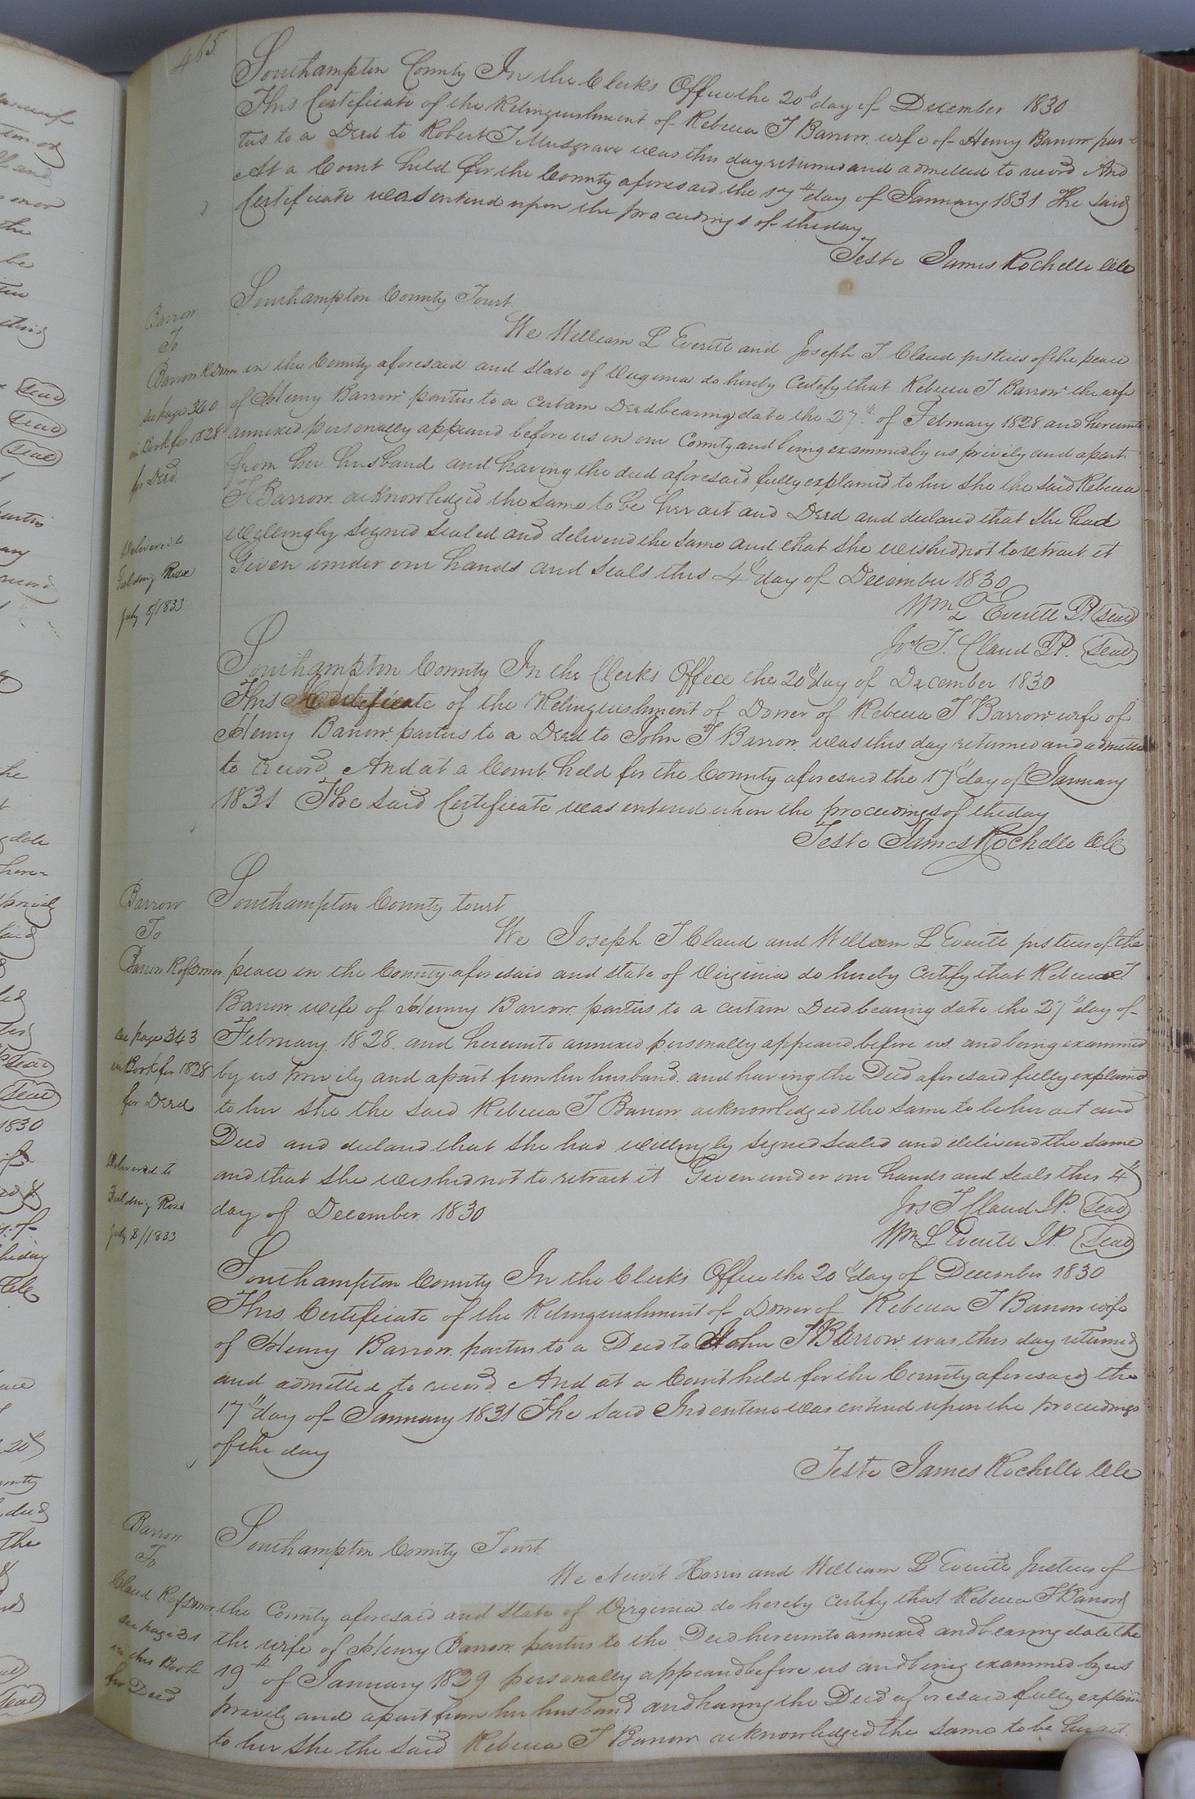 465
Southampton County In the Clerks Office the 20th day of December 1830
This Certificate of the Relinquishment of Rebecca T Barrow wife of Henry Barrow par-
ties to a Deed to Robert T Musgrave was this day returned and admitted to record And
At a Court held for the County aforesaid the 17th day of January 1831 The said
Certificate was entered upon the proceedings of the day
Teste James Rochelle Clk
Barrow
To
Barrow R Dow
see page 360
in Book for 1828
for Deed
Delivered to
Fielding Rose
July 8/1833
Southampton County Towit
We William L Everitt and Joseph T Claud justices of the peace
in the County aforesaid and State of Virginia do hereby Certify that Rebecca T Barrow the wife
of Henry Barrow parties to a certain Deed bearing date the 27th of February 1828 and hereunto
annexed personally appeared before us in our County and being examined by us privily and apart
from her husband and having the deed aforesaid fully explained to her she the said Rebecca
T Barrow acknowledged the same to be her act and Deed and declared that she had
willingly signed sealed and delivered the same and that she wished not to retract it
Given under our hands and seals this 4th day of December 1830
Wm L Everitt J.P. (seal)
Jos T. Claud J.P. (seal)
Southampton County In the Clerks Office the 20th day of December 1830
This Certificate of the Relinquishment of Dower of Rebecca T Barrow wife of
Henry Barrow parties to a Deed to John T Barrow was this day returned and admitted
to record And at a Court held for the County aforesaid the 17th day of January
1831 The said Certificate was entered upon the proceedings of the day
Teste James Rochelle Clk
Barrow
To
Barrow R of Dower
see page 343
in Book for 1828
for Deed
Delivered to
Fielding Rose
July 8/1833
Southampton County towit
We Joseph T Claud and William L Everitt justices of the
peace in the County aforesaid and state of Virginia do hereby certify that Rebecca T
Barrow wife of Henry Barrow parties to a certain Deed bearing date the 27th day of
February 1828 and hereunto annexed personally appeared before us and being examined
by us privily and apart from her husband and having the Deed aforesaid fully explained
to her she the said Rebecca T Barrow acknowledged the same to be her act and
Deed and declared that she had willingly signed sealed and delivered the same
and that she wished not to retract it Given under our hands and seals this 4th
day of December 1830
Jos T Claud J.P. (seal)
Wm L Everitt J.P. (seal)
Southampton County In the Clerks Office the 20th day of December 1830
This Certificate of the Relinquishment of Dower of Rebecca T Barrow wife
of Henry Barrow parties to a Deed to John T Barrow was this day returned
and admitted to record And at a Court held for the County aforesaid the
17th day of January 1831 The said Indenture was entered upon the proceedings
of the day
Teste James Rochelle Clk
Barrow
To
Claud R of Dower
see page 31
in this Book
for Deed
Southampton County Towit
We Newit Harris and William L Everitt Justices of
the County aforesaid and State of Virginia do hereby certify that Rebecca T Barrow
the wife of Henry Barrow parties to the Deed hereunto annexed and bearing date the
19th of January 1829 personally appeared before us and being examined by us
privily and apart from her husband and having the Deed aforesaid fully explained
to her she the said Rebecca T Barrow acknowledged the same to be her act